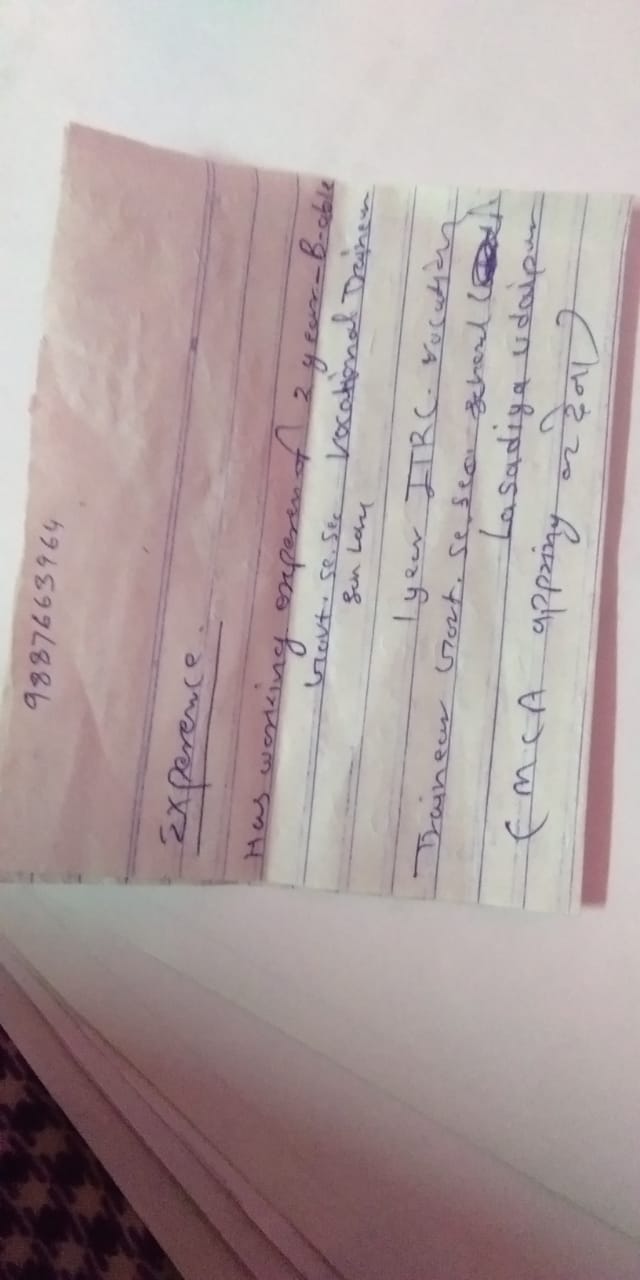 9887663964
Experence.
Has working experence 2 year - B-able
Govt. Se. Sec Vocational Trainer
1 year IIRC. vocation
Trainer Govt. Se. Sec. School
Lasadiya Udaipur
( MCA appring